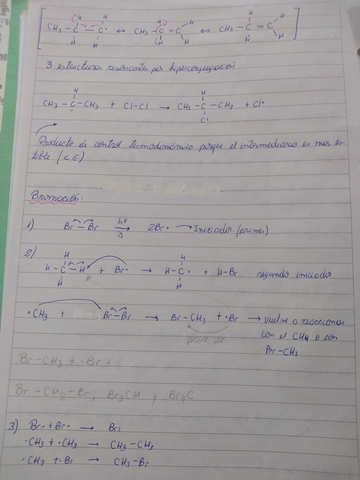 CH₃ — C — C• ↔ CH₃ C = C ↔ CH₃ — C = C
3 estructuras resonantes por hiperconjugación
CH₃ — C — CH₃ + Cl–Cl → CH₃ — C — CH₃ + Cl•
Producto de control termodinámico porque el intermediario es más estable (< E)
Bromación:
1) Br — Br hν Δ → 2Br• → Iniciador (prima)
2) H — C — H + Br• → H — C• + H–Br segundo iniciador
•CH₃ + Br–Br → Br–CH₃ + •Br → vuelve a reaccionar
con el CH₄ o con
Br–CH₃
Br–CH₃ + •Br +
Br–CH₂–Br, Br₃CH y Br₄C
3) Br• + Br• → Br₂
•CH₃ + •CH₃ → CH₃–CH₃
•CH₃ + •Br → CH₃–Br